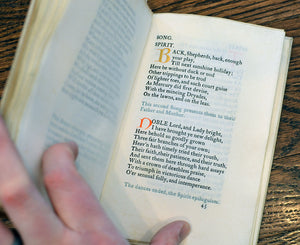 SONG.
SPIRIT.
BACK, Shepherds, back, enough
your play,
Till next sunshine holiday;
Here be without duck or nod
Other trippings to be trod
Of lighter toes, and such court guise
As Mercury did first devise,
With the mincing Dryades,
On the lawns, and on the leas.
This second Song presents them to their
Father and Mother.
NOBLE Lord, and Lady bright,
I have brought ye new delight,
Here behold so goodly grown
Three fair branches of your own;
Heav'n hath timely tried their youth,
Their faith, their patience, and their truth,
And sent them here through hard assays
With a crown of deathless praise,
To triumph in victorious dance
O'er sensual folly, and intemperance.
The dances ended, the Spirit epiloguises.
45